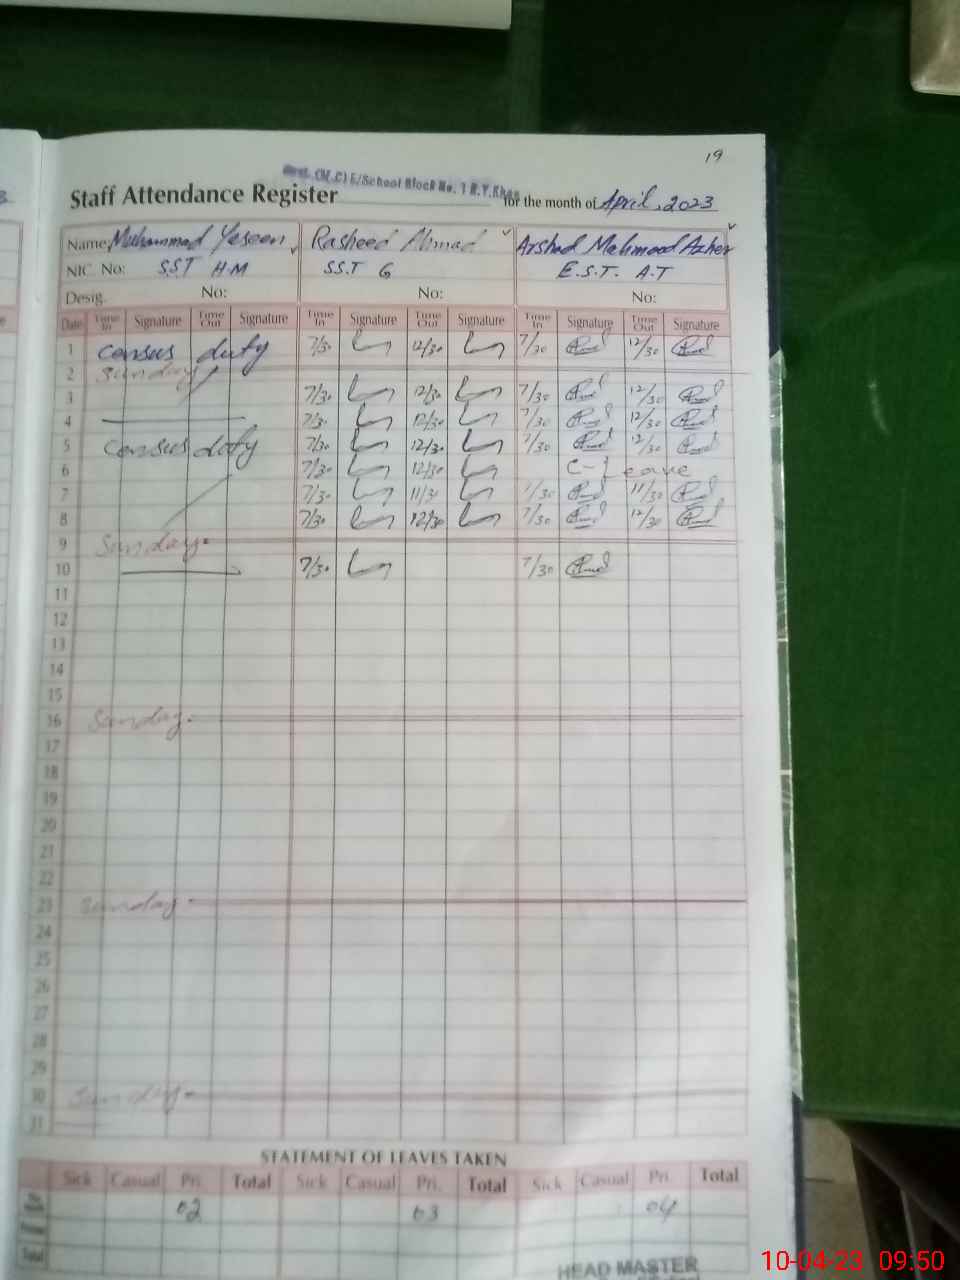 19
E/School Block No. 1 R.Y.Khan
Staff Attendance Register for the month of April, 2023
Name Muhammad Yaseen Rasheed Ahmad Arshad Mehmood Azher
NIC No: SST H.M SS.T G E.S.T. A.T
Desig. No: No: No:
Date Time In Signature Time Out Signature Time In Signature Time Out Signature Time In Signature Time Out Signature
1 Census duty 7/30 12/30 7/30 12/30
2 Sunday
3 7/30 12/30 7/30 12/30
4 7/30 12/30 7/30 12/30
5 Census duty 7/30 12/30 7/30 12/30
6 7/30 12/30 C-Leave
7 7/30 11/30 7/30 11/30
8 7/30 12/30 7/30 12/30
9 Sunday
10 7/30 7/30
11
12
13
14
15
16 Sunday
17
18
19
20
21
22
23 Sunday
24
25
26
27
28
29
30 Sunday
31
STATEMENT OF LEAVES TAKEN
Sick Casual Pri. Total Sick Casual Pri. Total Sick Casual Pri. Total
02 03 04
Total
HEAD MASTER
10-04-23 09:50